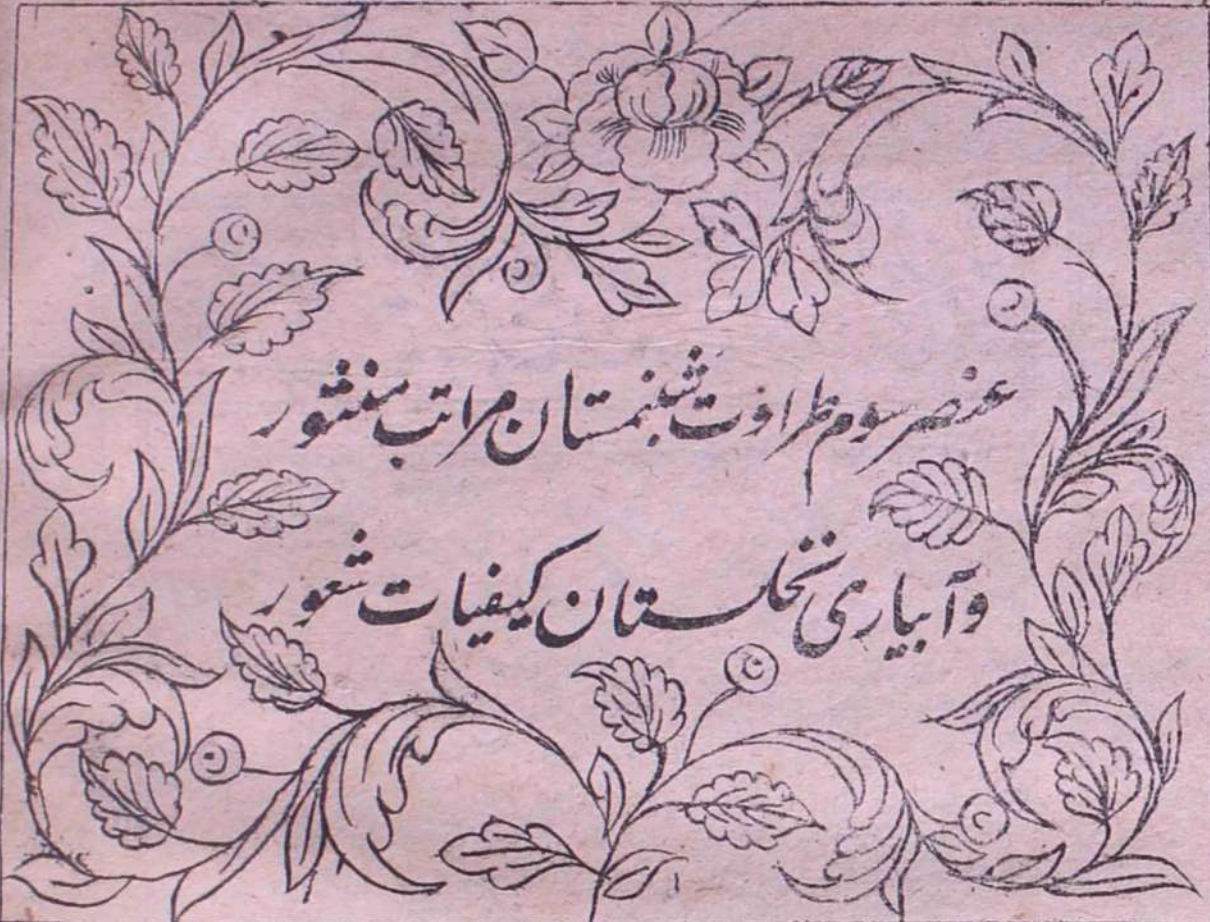 عنصر سوم طراوت شبنمستان مراتب منثور
و آبیاری نخلستان کیفیات شعور